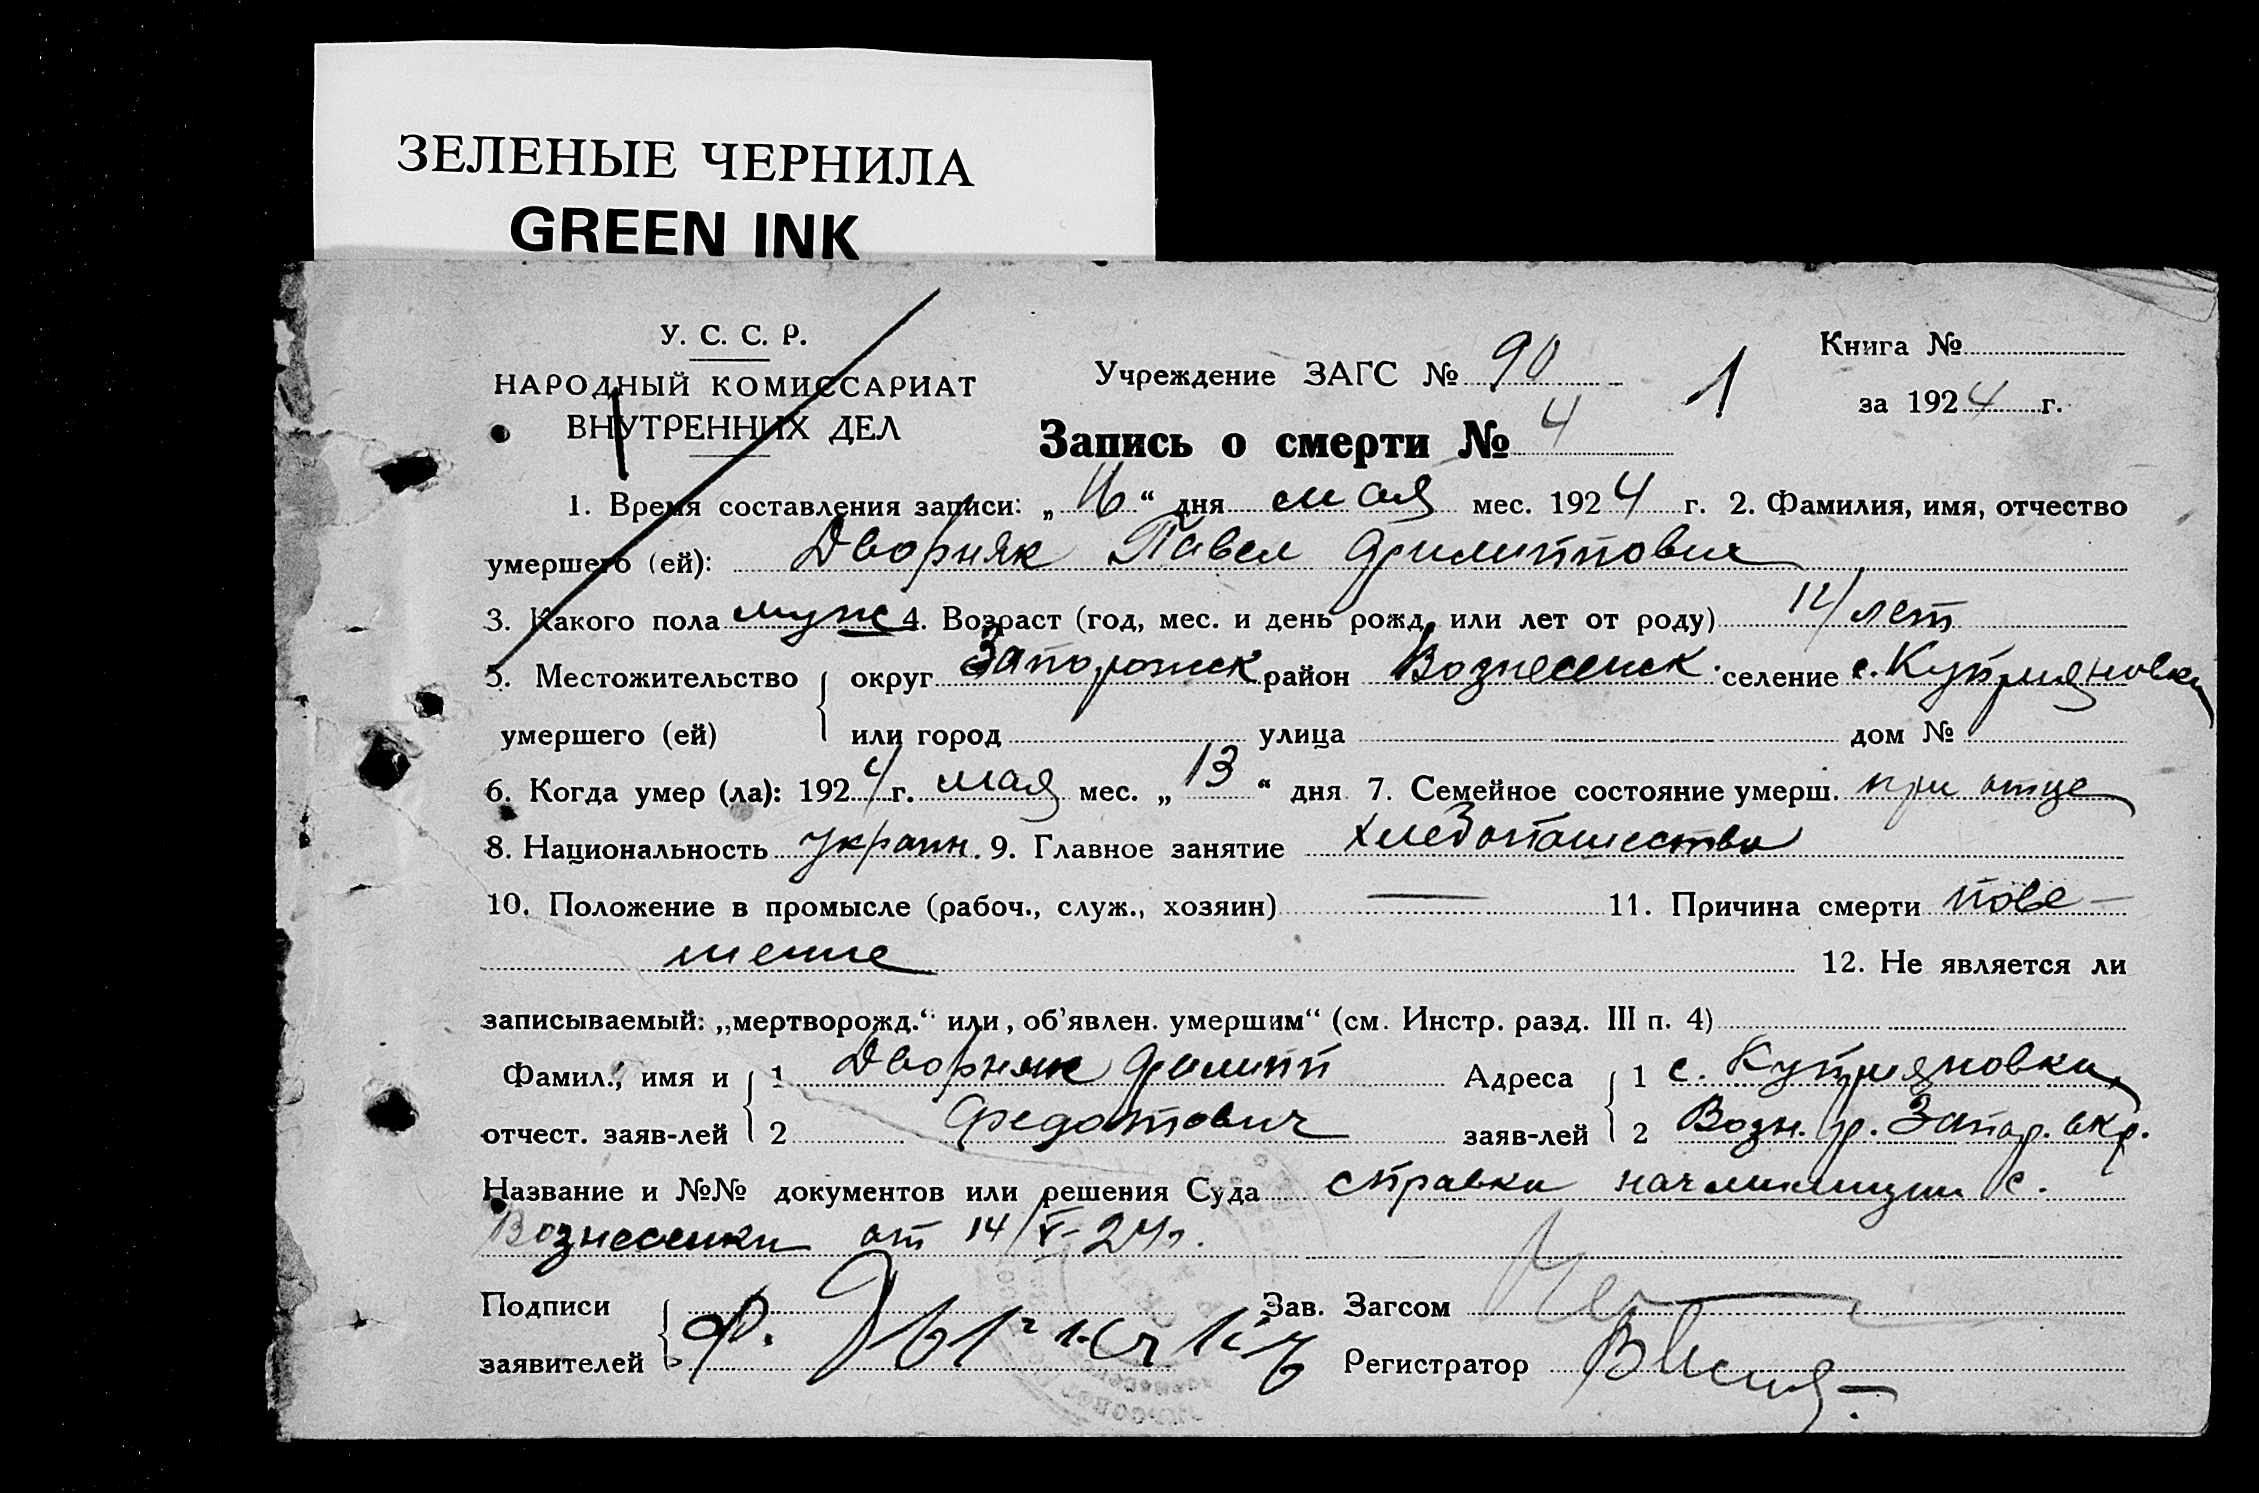 ЗЕЛЕНЫЕ ЧЕРНИЛА
GREEN INK
У. С. С. Р.
НАРОДНЫЙ КОМИССАРИАТ
ВНУТРЕННИХ ДЕЛ
Учреждение ЗАГС № 90
1
Книга №
за 1924 г.
Запись о смерти № 4
1. Время составления записи: „16“ дня мая мес. 1924 г. 2. Фамилия, имя, отчество
умершего (ей): Дворняк Павел Филиппович
3. Какого пола муж 4. Возраст (год, мес. и день рожд. или лет от роду) лет
5. Местожительство округ Запорожск район Вознесенск. селение с. Куприяновка
умершего (ей) или город улица дом №
6. Когда умер (ла): 1924 г. мая мес. „13“ дня 7. Семейное состояние умерш. при отце
8. Национальность украин. 9. Главное занятие хлебопашество
10. Положение в промысле (рабоч., служ., хозяин) — 11. Причина смерти пове-
шение 12. Не является ли
записываемый: „мертворожд.“ или „об’явлен. умершим“ (см. Инстр. разд. III п. 4)
Фамил., имя и 1 Дворняк Филипп Адреса 1 с. Куприяновка,
отчест. заяв-лей 2 Федотович заяв-лей 2 Возн. р. Запор. окр.
Название и №№ документов или решения Суда справка начмилиции с.
Вознесенки от 14/V-24г.
Подписи Зав. Загсом
заявителей Ф. Регистратор